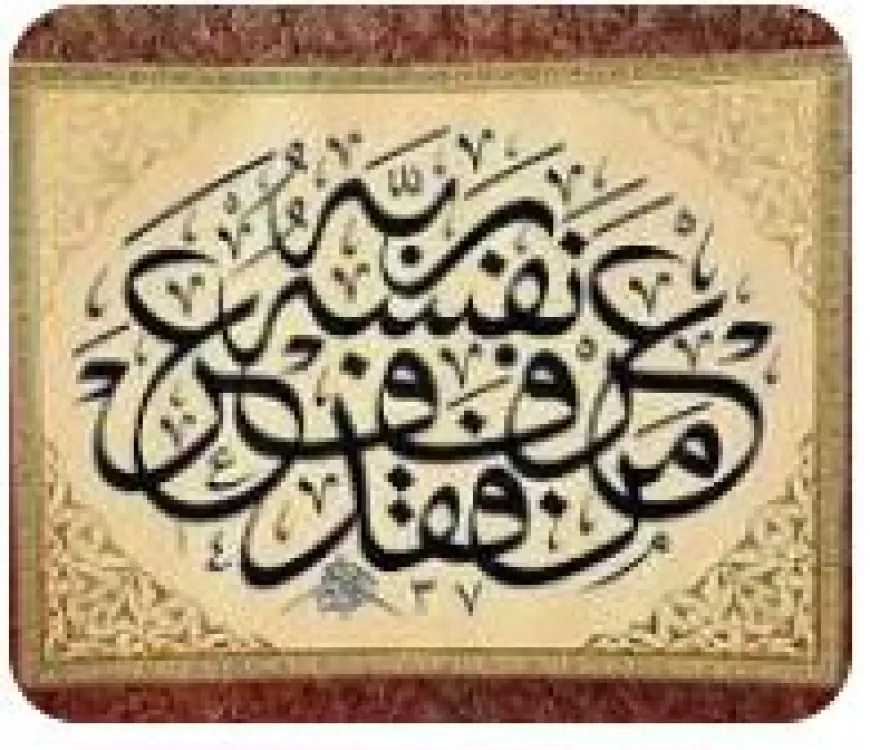 من عرف نفسه فقد عرف ربه